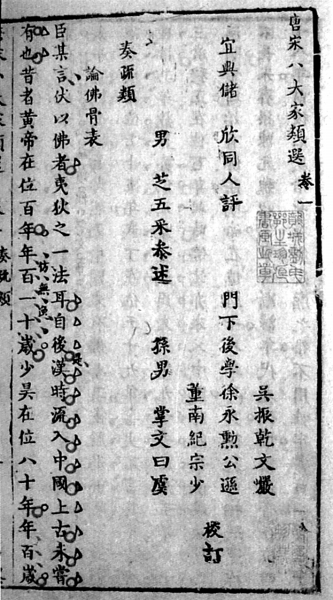 唐宋八大家類選 卷一
吳振乾文巖
宜興儲 欣同人評 門下後學徐永勳公遜 校訂
董南紀宗少
男 芝五采叅述 孫男 掌文曰虞
奏疏類
論佛骨表
臣某言伏以佛者夷狄之一法耳自後漢時流入中國上古未嘗
有也昔者黃帝在位百年年百一十歲少昊在位八十年年百歲